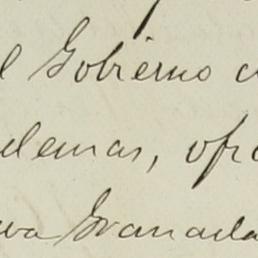 l Gobierno
demas, ofr
va Granada